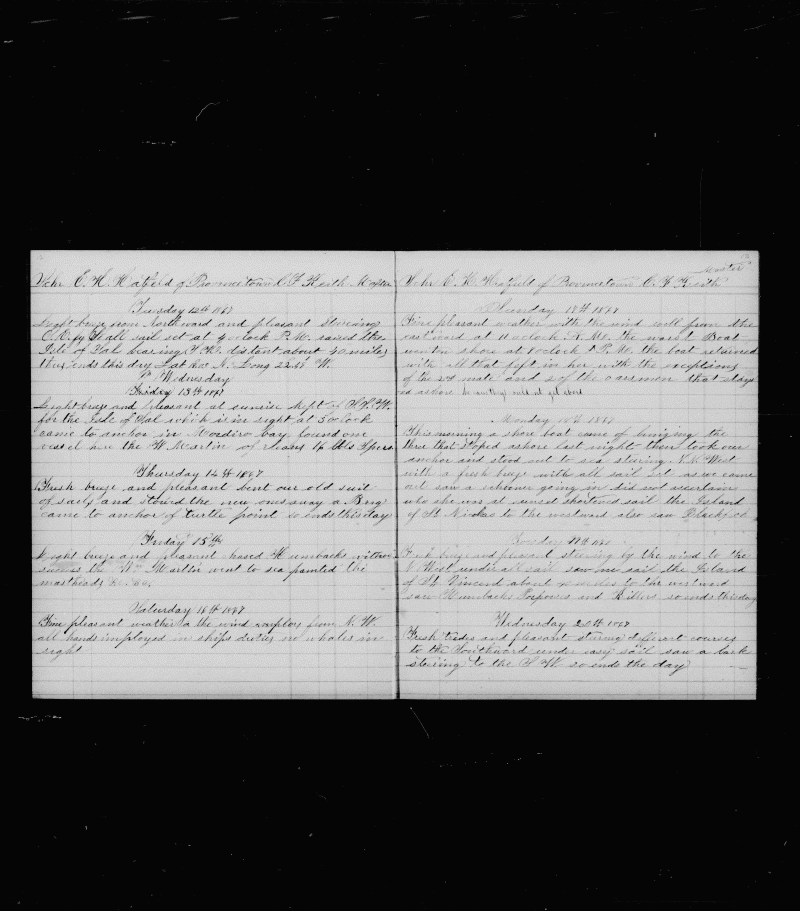 Schr E. H. Hatfield of Provincetown C. F. Keith Master
Tuesday 12th 1867
Light breze from Northward and pleasant Steering
all sail set at 4 oclock P.M. raised the
Isle of Sal bearing distant about 40 miles
thus ends this day Lat N. Long W.
Wednesday
Friday 13th 1867
Light breze and pleasant at sunrise kept of S.S.W.
for the Isle of Sal which is in sight at 5 oclock
came to anchor in bay found one
vessel here the W Martin of
Thursday 14th 1867
Fresh breze and pleasant bent our old suit
of sails and stowed the new ones away a Brig
came to anchor of turtle point so ends this day
Friday 15th
Light breze and pleasant chased Humbacks without
success the Wm Martin went to sea painted the
mastheads &c. &c.
Saturday 16th 1867
Fine pleasant weather the wind from N.W.
all hands imployed in ships duties no whales in
sight
Master
Schr E. H. Hatfield of Provincetown C. F. Keith
Sunday 17th 1867
Fine pleasant weather with the wind well from the
eastward at 11 oclock A.M. the waist Boat
went on shore at 1 oclock P.M. the boat returned
with all that left in her with the exceptions
of the 2nd mate and 2 of the oarsmen that stays
ashore
Monday 18th 1867
This morning a shore boat came of bringing the
three that stoped ashore last night then took our
anchor and stood out to sea stering N. West
with a fresh breze with all sail set as we came
out saw a schooner going in did not ascertain
who she was at sunset shortened sail the Island
of St Nicolas to the westward also saw Blackfish
Tuesday 19th 1867
Fresh breze and pleasant stering by the wind to the
N West under all sail saw one sail the Island
of St. Vincent about miles to the westward
saw Humbacks Porpoises and Killers so ends this day
Wednesday 20th 1867
Fresh trades and pleasant stering different courses
to the Southward under easy sail saw a bark
stering to the S W. so ends the day